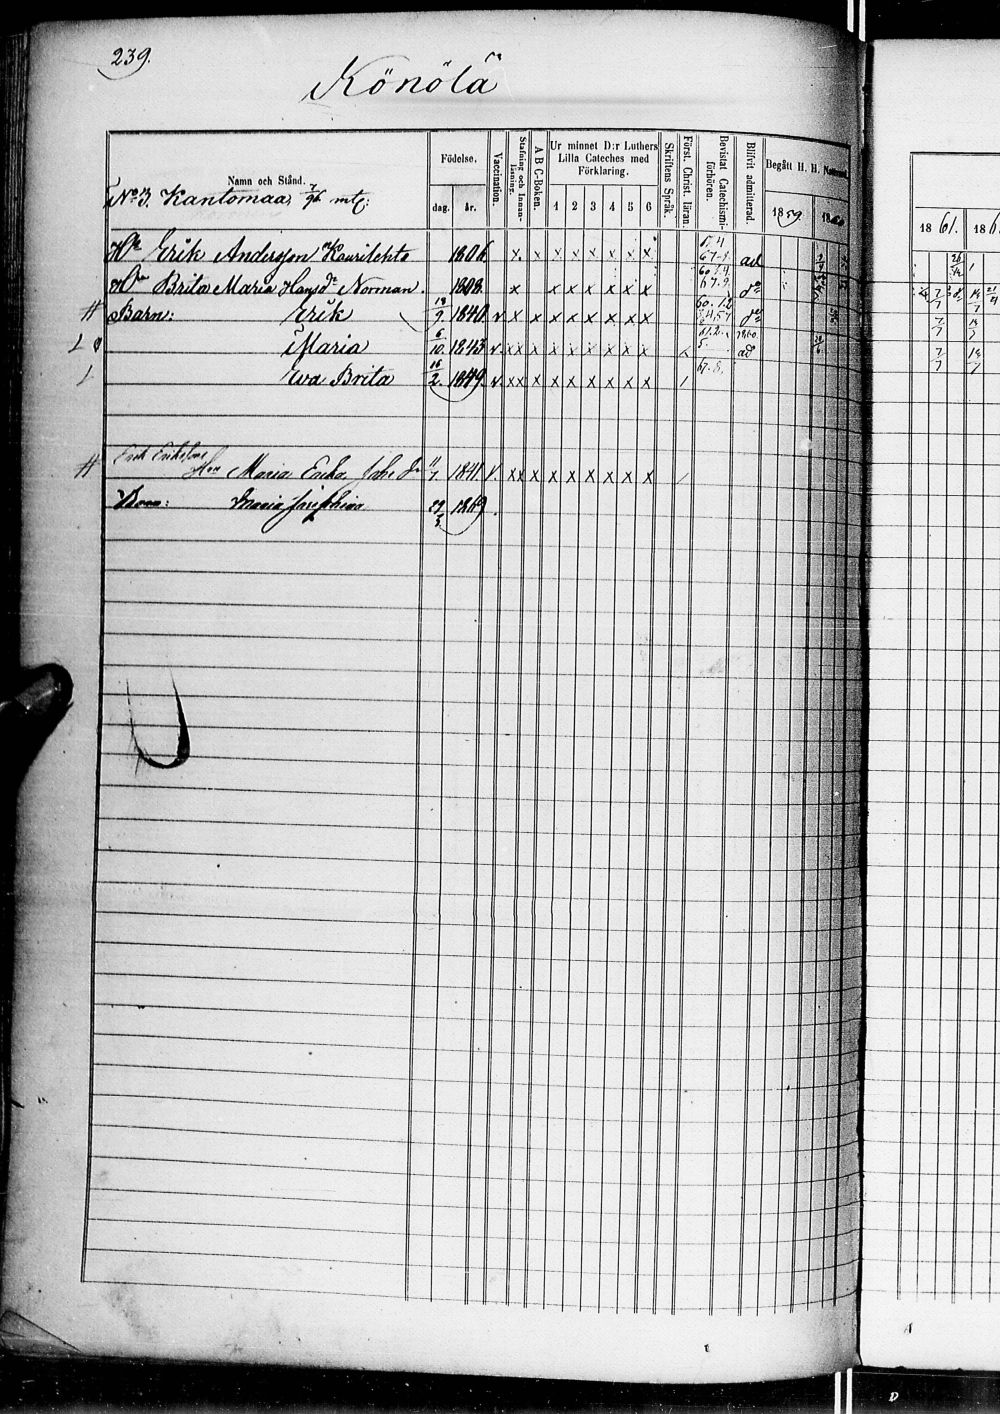 239.
Könölä
Namn och Stånd.
Födelse.
dag.
år.
Vaccination.
Stafning och Innanläsning.
A B C-Boken.
Ur minnet D:r Luthers
Lilla Cateches med
Förklaring.
1 2 3 4 5 6
Skriftens Språk.
Först. Christ. läran.
Bevistat Catechismi-
förhören.
Blifvit admitterad.
Begått H. H. Nattvard.
1859. 1860
18 61. 186
No 3. Kantomaa, 7/96 mtl:
Erik Andersson Kourilehto 1806 x. x x x x x x x ad
Brita Maria Hansdr Norman. 1808. x x x x x x x
# Barn: Erik 18/9. 1840 v x x x x x x x x
Maria 6/10. 1843 v. xx x x x x x x x 1860. ad
Eva Brita 16/2. 1849. v. xx x x x x x x x /
Erik Eriksson
# Hu Maria Erika, Joh. dr 11/7. 1841 v. xx x x x x x x x /
Barn: Maria Josephina 27/3. 1869.